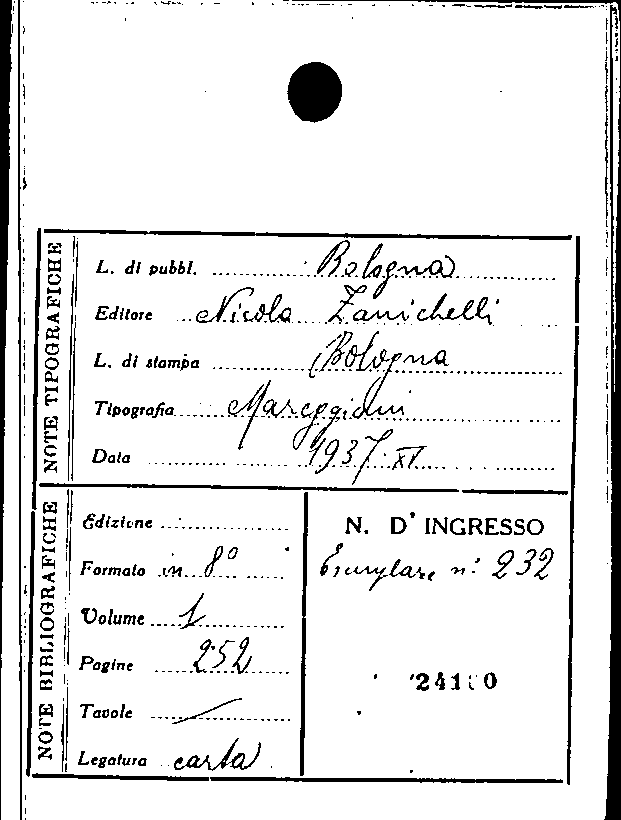 NOTE TIPOGRAFICHE
L. di pubbl. Bologna
Editore Nicola Zanichelli
L. di stampa Bologna
Tipografia Mareggiani
Data 1937·XV
NOTE BIBLIOGRAFICHE
Edizione
Formato in 8º
Volume 1
Pagine 252
Tavole /
Legatura carta
N. D' INGRESSO
Esemplare n. 232